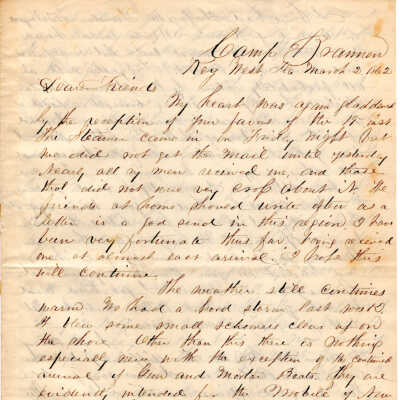 Camp Brannon
Key West Fla March 2, 1862
Dear Friend
My heart was again gladdened
by the reception of your favor of the 15 inst
The Steamer came in on Friday night but
we did not get the Mail until yesterday
Nearly all my men received one, and those
that did not were very cross about it. The
friends at home should write often as a
letter is a god send in this region I have
been very fortunate thus far, having received
one at almost each arrival. I hope this
will continue.
The weather still continues
warm We had a hard storm last week.
It blew some small schooners clear up on
the shore Other than this there is nothing
especially new with the exception of the continued
arrival of Gun and Mortar Boats. They are
evidently intended for the Mobile or New